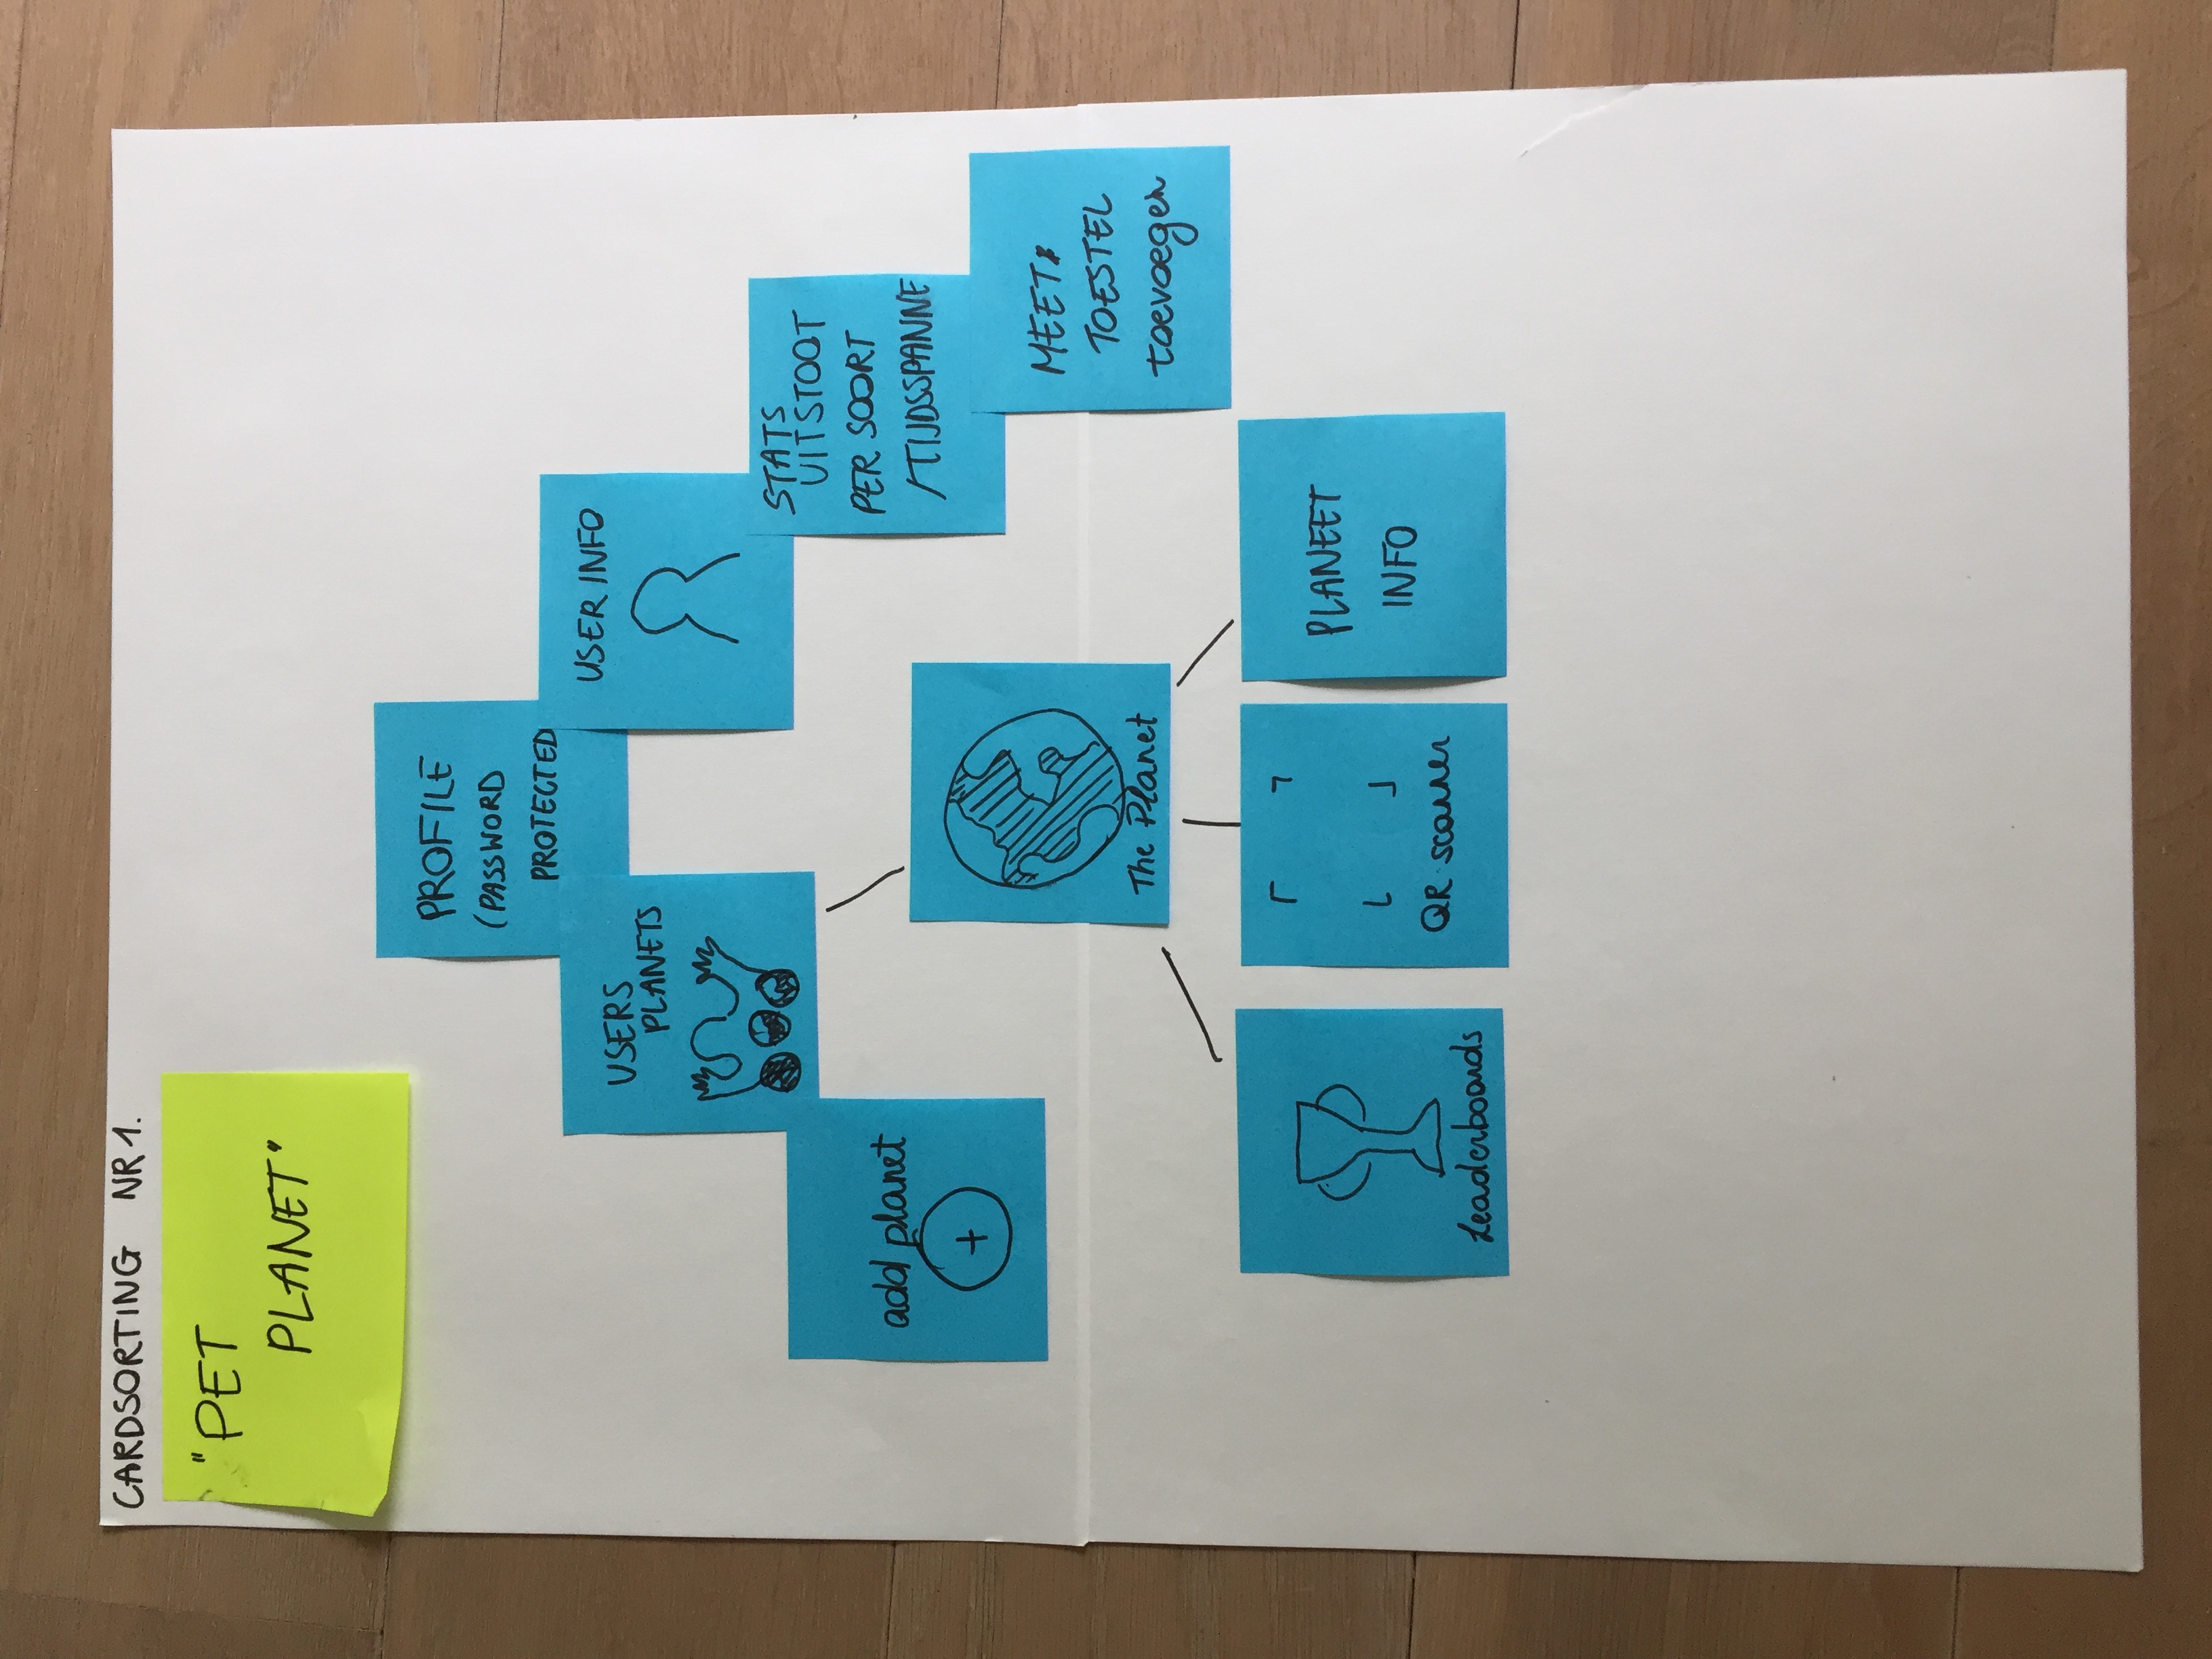 CARDSORTING NR 1.
"PET
PLANET"
PROFILE
(PASSWORD
PROTECTED
USERS
PLANETS
USER INFO
STATS
UITSTOOT
PER SOORT
/TIJDSSPANNE
add planet
+
The Planet
MEET
TOESTEL
toevoegen
Leaderboards
QR scanner
PLANEET
INFO